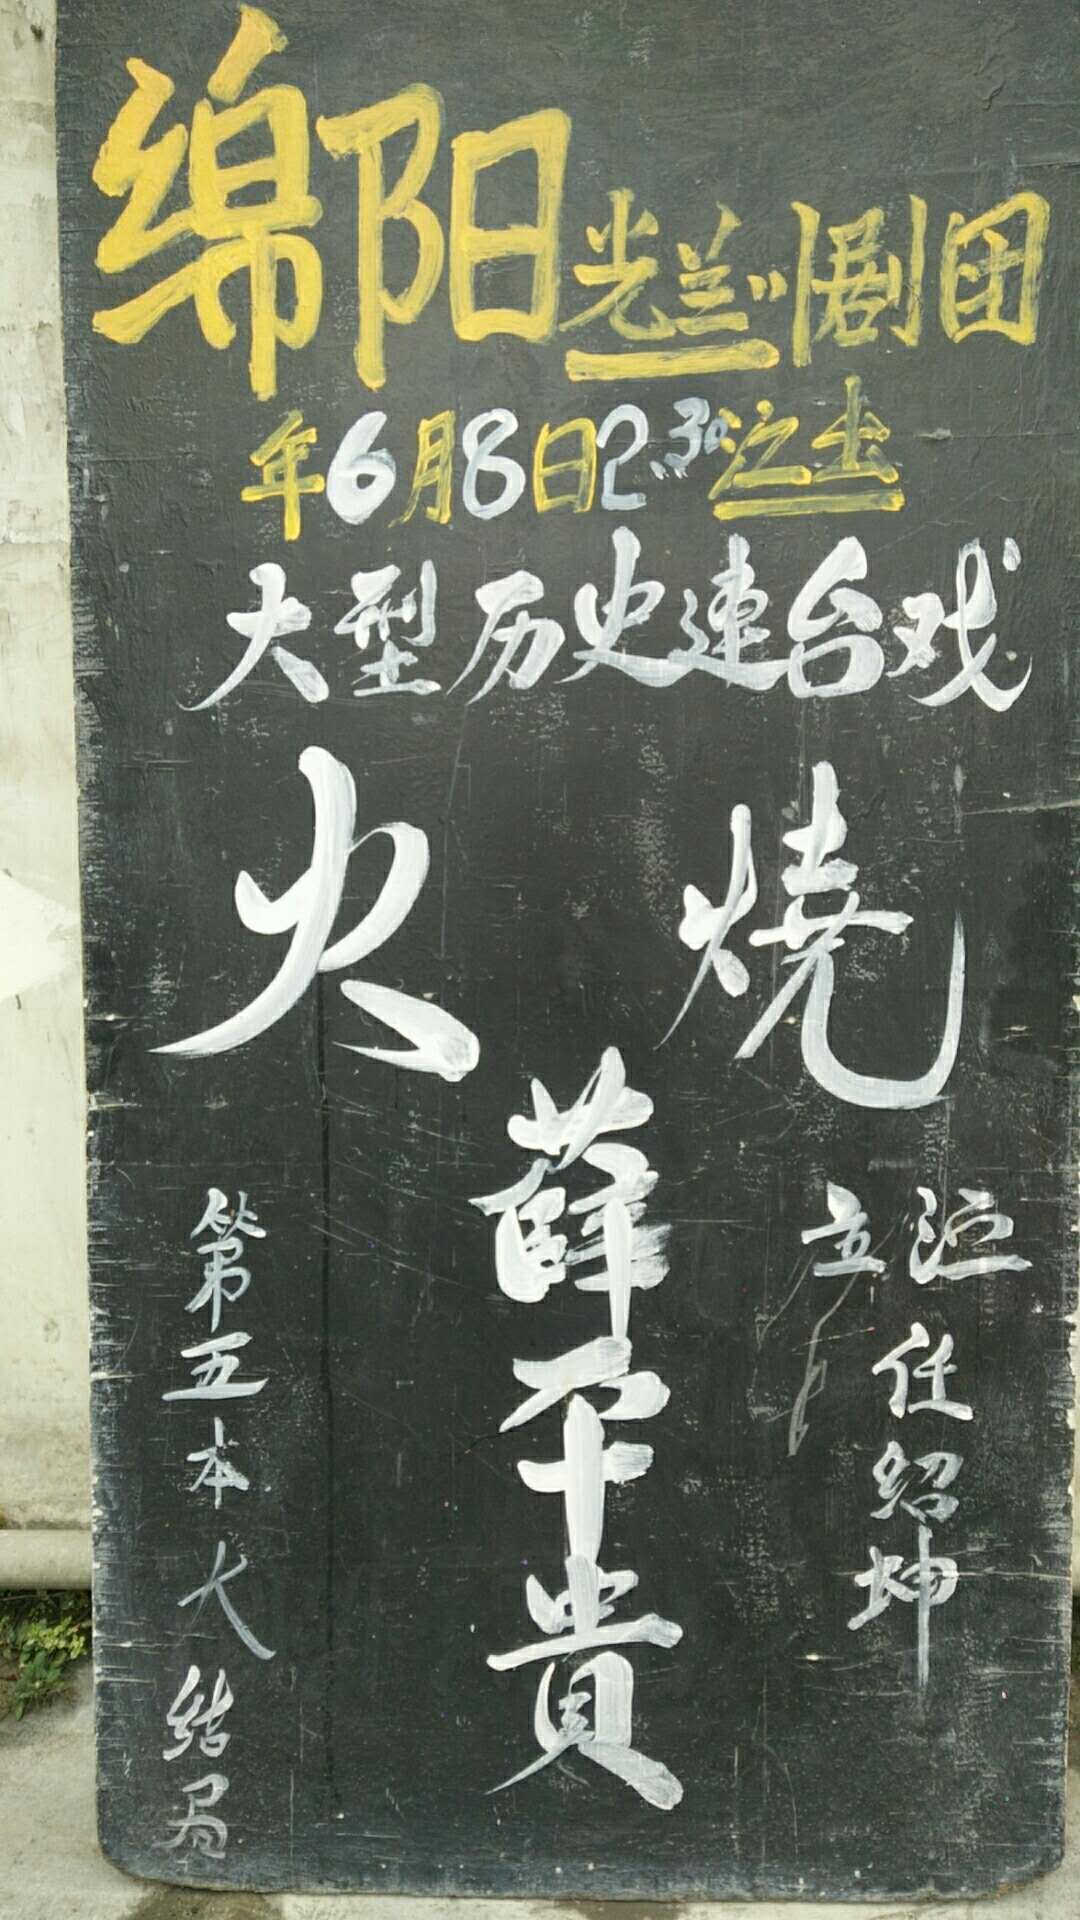 绵阳光兰川剧团
年6月8日2:30注土
大型历史連台戏
火燒
薛平貴
导演任绍坤
第五本大结局